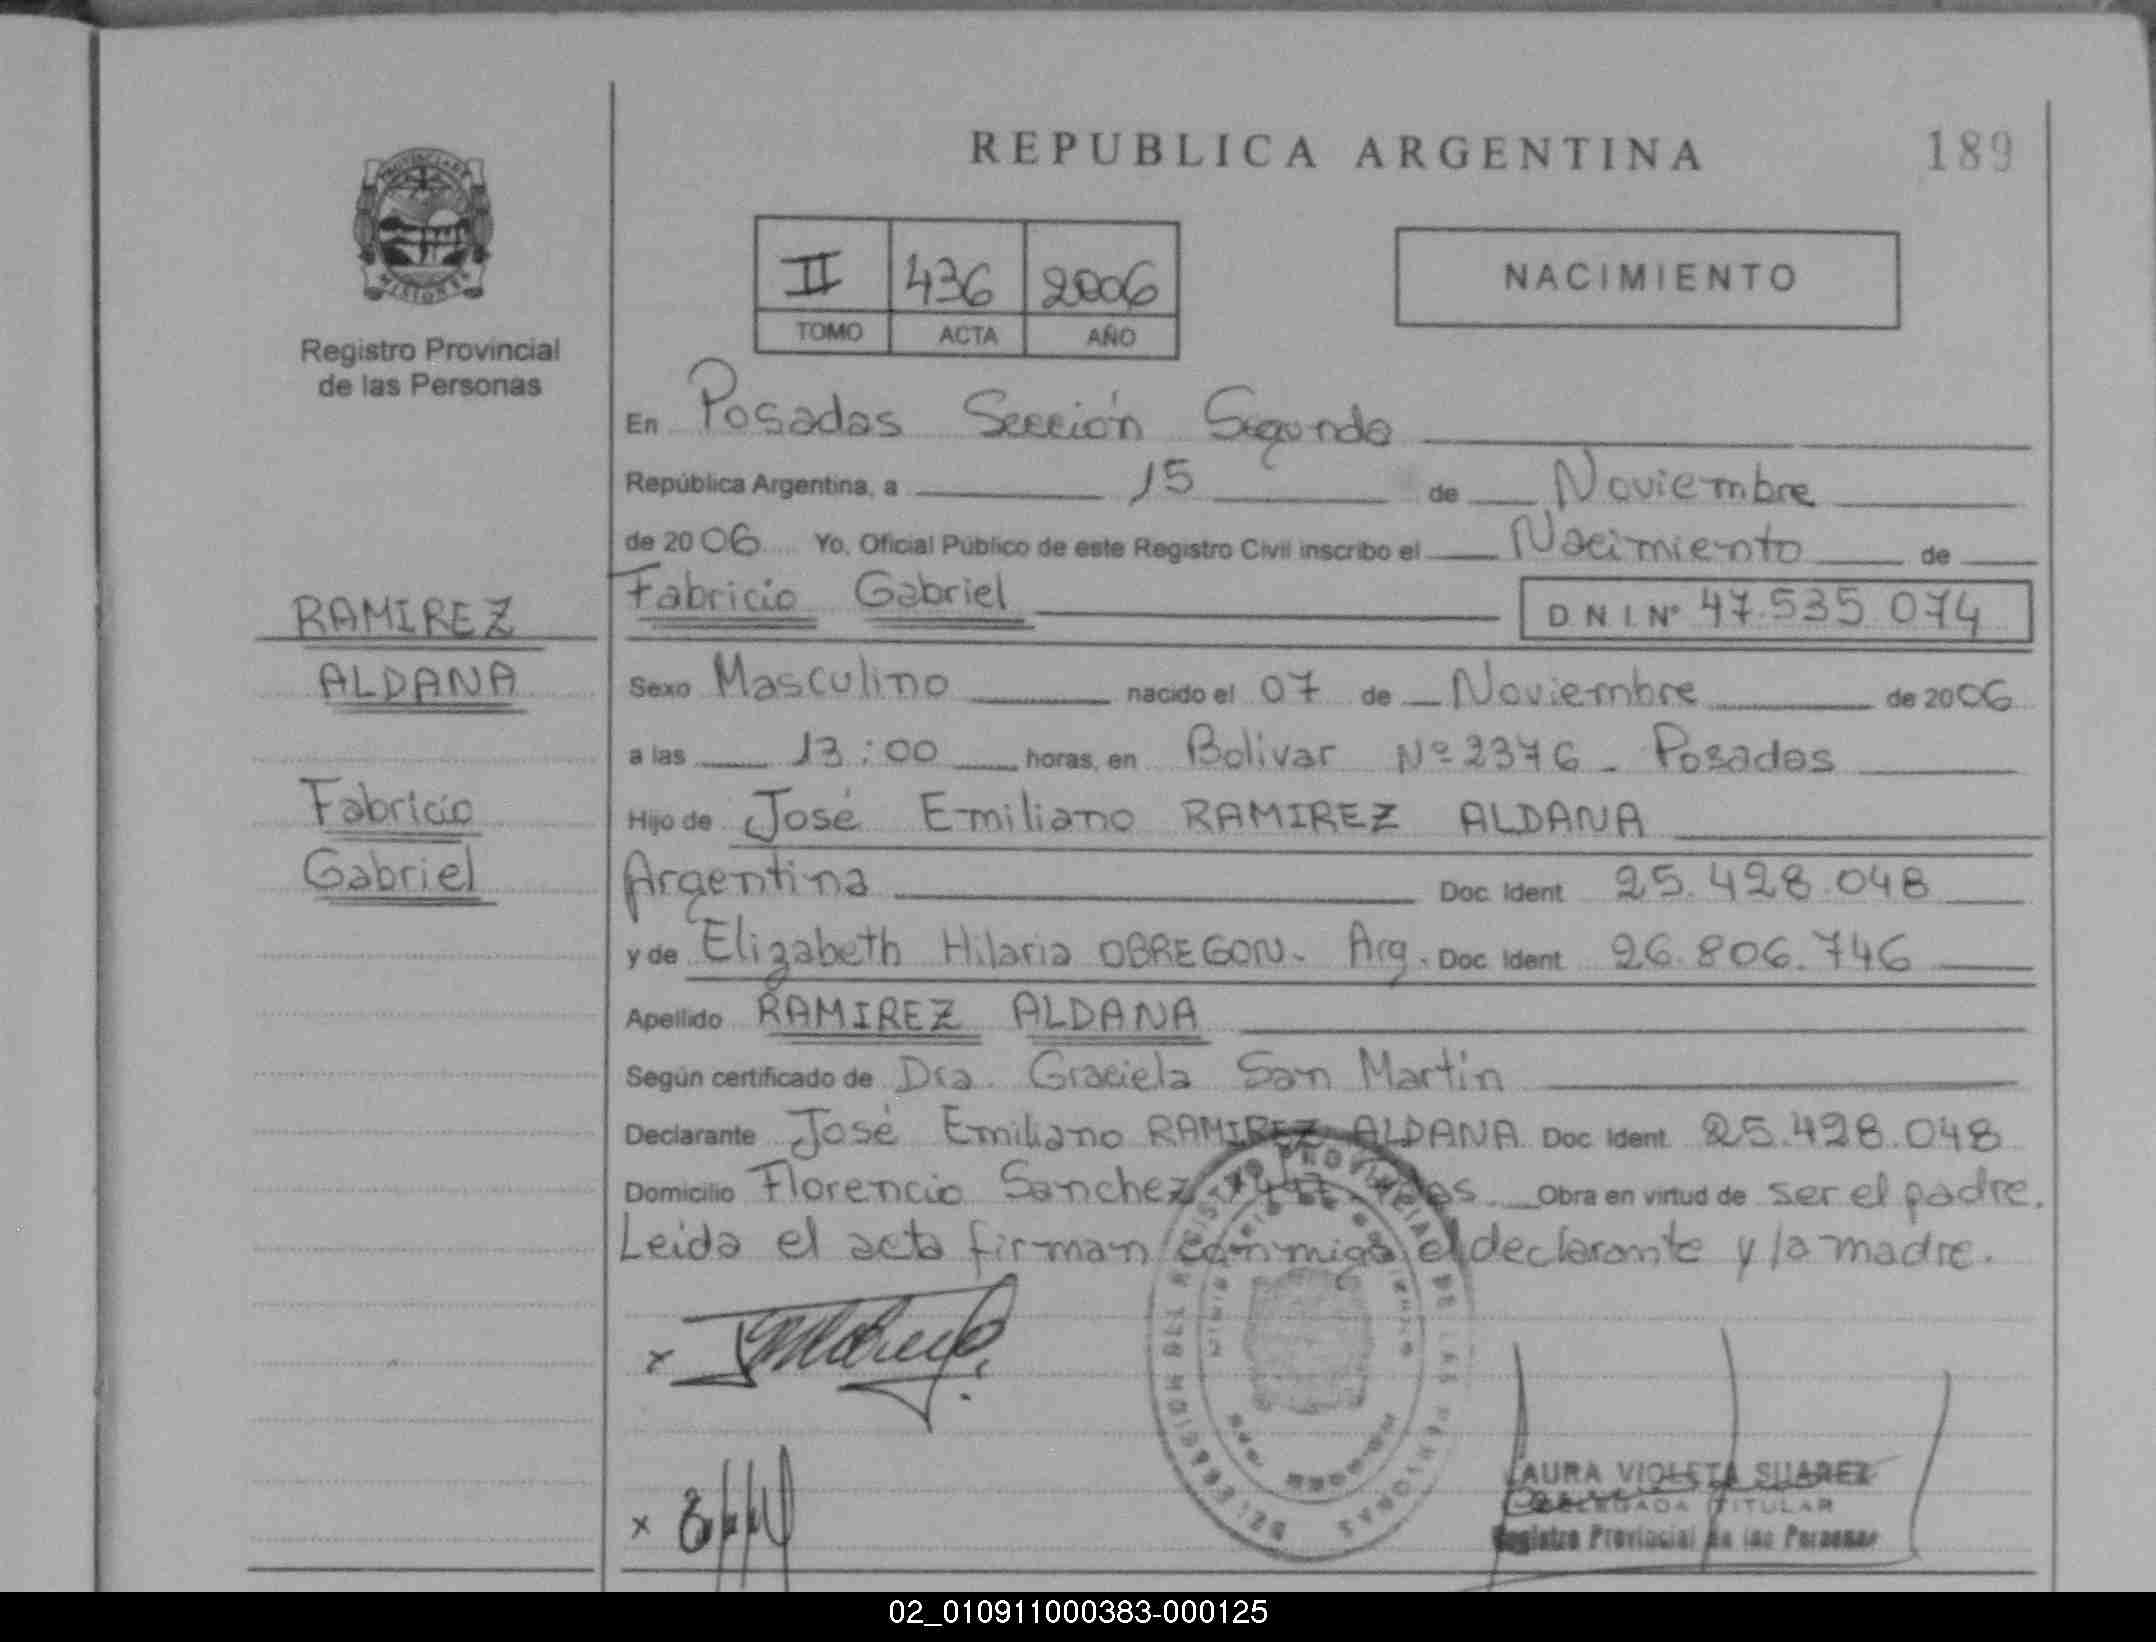 REPUBLICA ARGENTINA
189
PROVINCIA DE
MISIONES
Registro Provincial
de las Personas
II 436 2006
TOMO ACTA AÑO
NACIMIENTO
En Posadas Sección Segunda
República Argentina, a 15 de Noviembre
de 2006 Yo, Oficial Público de este Registro Civil inscribo el Nacimiento de
Fabricio Gabriel D N I N° 47.535.074
RAMIREZ
ALDANA
Fabricio
Gabriel
Sexo Masculino nacido el 07 de Noviembre de 2006
a las 13:00 horas, en Bolivar Nº 2376 - Posadas
Hijo de José Emiliano RAMIREZ ALDANA
Argentina Doc. Ident 25.428.048
y de Elizabeth Hilaria OBREGON - Arg. Doc Ident 26.806.746
Apellido RAMIREZ ALDANA
Según certificado de Dra. Graciela San Martin
Declarante José Emiliano RAMIREZ ALDANA Doc Ident 25.428.048
Domicilio Florencio Sanchez Obra en virtud de ser el padre.
Leida el acta firman conmigo el declarante y la madre.
REGISTRO PROVINCIAL DE LAS PERSONAS
LAURA VIOLETA SUAREZ
DELEGADA TITULAR
Registro Provincial de las Personas
02_010911000383-000125